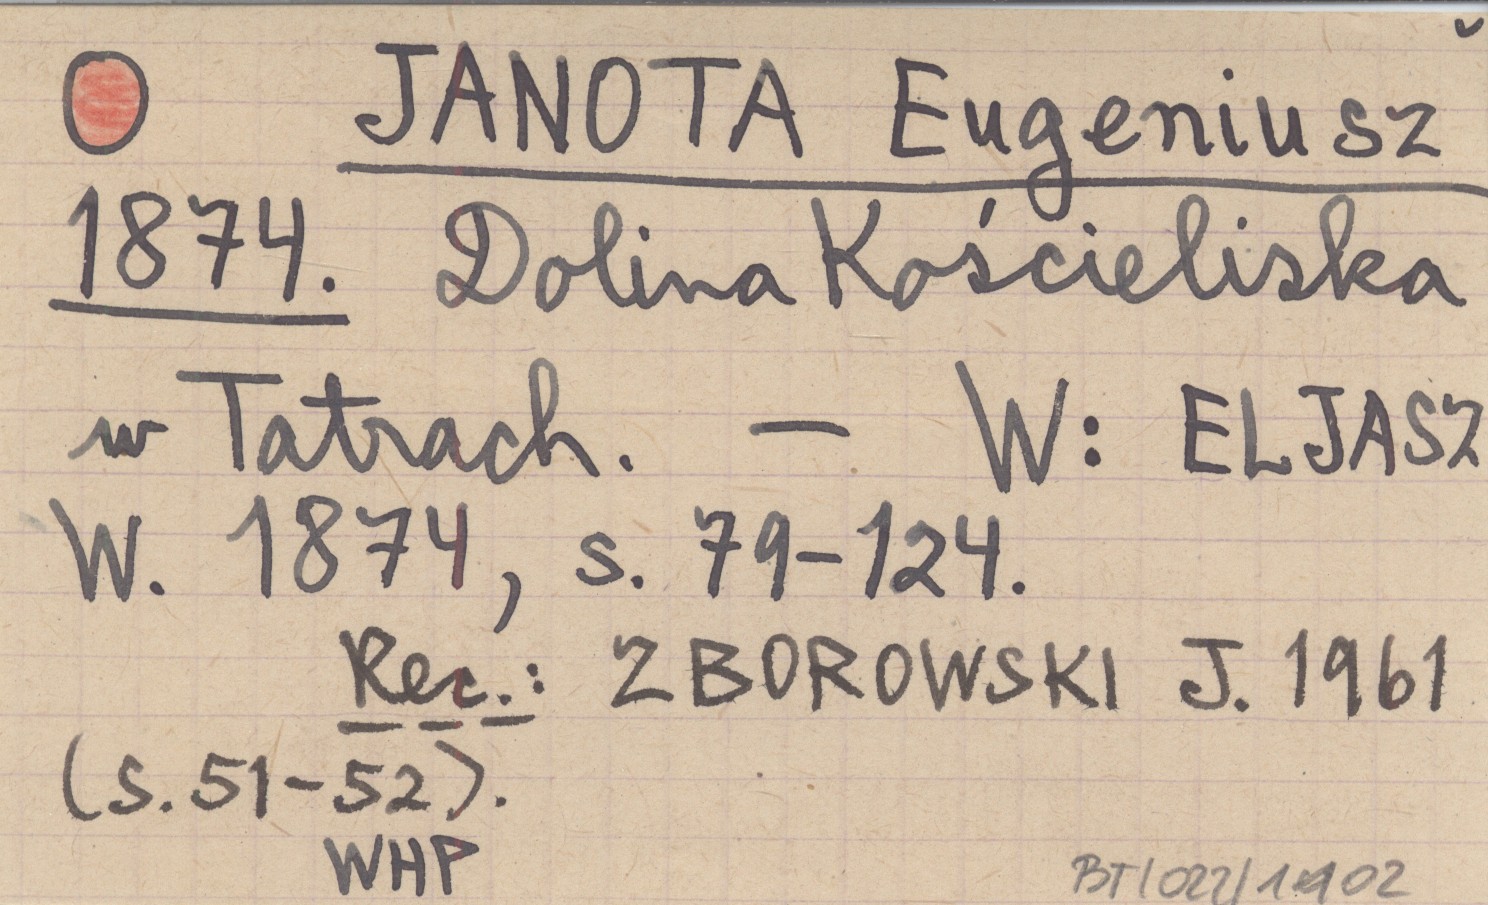 JANOTA Eugeniusz
1874. Dolina Kościeliska
w Tatrach. — W: ELJASZ
W. 1874, s. 79-124.
Rec.: ZBOROWSKI J. 1961
(s. 51-52).
WHP
BT/022/